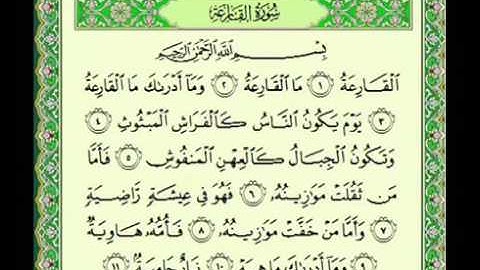 سُورَةُ القَارِعَة
بِسْمِ اللَّهِ الرَّحْمَٰنِ الرَّحِيمِ
الْقَارِعَةُ ١ مَا الْقَارِعَةُ ٢ وَمَا أَدْرَىٰكَ مَا الْقَارِعَةُ
٣ يَوْمَ يَكُونُ النَّاسُ كَالْفَرَاشِ الْمَبْثُوثِ ٤
وَتَكُونُ الْجِبَالُ كَالْعِهْنِ الْمَنفُوشِ ٥ فَأَمَّا
مَن ثَقُلَتْ مَوَٰزِينُهُ ٦ فَهُوَ فِي عِيشَةٍ رَّاضِيَةٍ
٧ وَأَمَّا مَنْ خَفَّتْ مَوَٰزِينُهُ ٨ فَأُمُّهُ هَاوِيَةٌ
٩ وَمَا أَدْرَىٰكَ مَا هِيَهْ ١٠ نَارٌ حَامِيَةٌ ١١